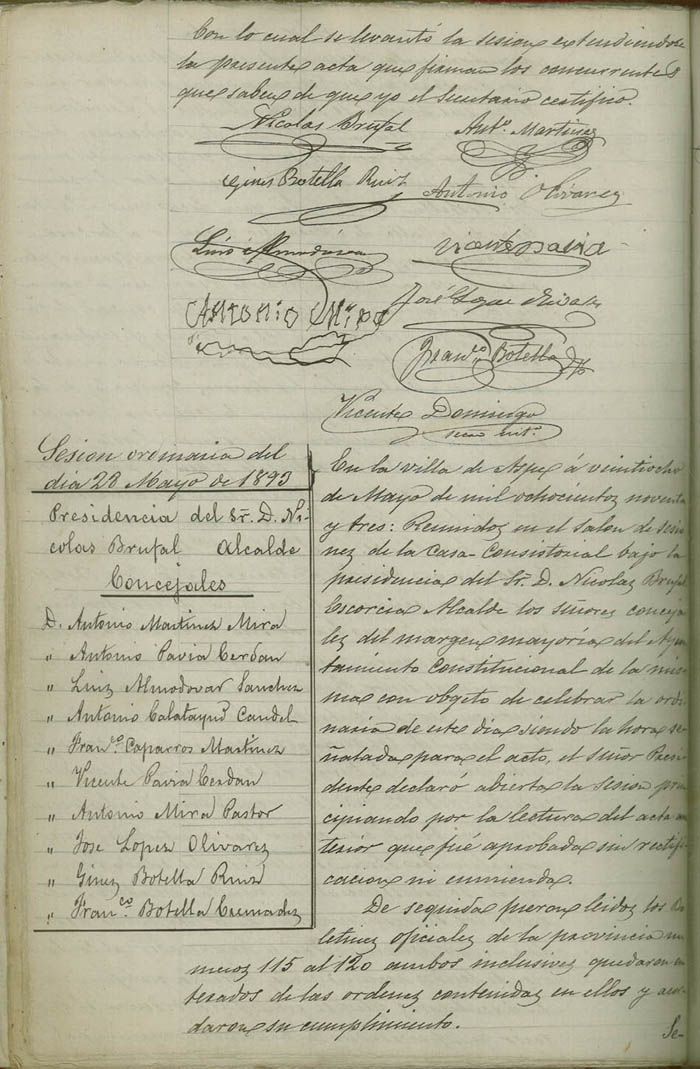 Con lo cual se levantó la sesion extendiendose
la presente acta que firman los concurrentes
que saben de que yo el Secretario certifico.
Nicolas Brufal
Antº Martinez
Gines Botella Ruiz
Antonio Olivarez
Luis Almodovar
Vicente Pavia
Antonio Mira
José Lopez Olivares
Franco Botella
Vicente Domingo
secrº intº
Sesion ordinaria del
dia 28 Mayo de 1893
Presidencia del Sr. D. Ni-
colas Brufal Alcalde
Concejales
D. Antonio Martinez Mira
" Antonio Pavia Cerdan
" Luiz Almodovar Sanchez
" Antonio Calatayud Candel
" Franco Caparros Martinez
" Vicente Pavia Cerdan
" Antonio Mira Pastor
" Jose Lopez Olivarez
" Ginez Botella Ruiz
" Franco Botella Cremadez
En la villa de Aspe á veintiocho
de Mayo de mil ochocientos noventa
y tres: Reunidoz en el salon de sesio
nez de la Casa-Consistorial bajo la
presidencia del Sr. D. Nicolaz Brufal
Escorcia Alcalde los señorez conceja
lez del margen mayoria del Ayun
tamiento Constitucional de la mis
ma con obgeto de celebrar la ordi
naria de este dia, siendo la hora se
ñalada para el acto, el señor Presi
dente declaró abierta la sesion prin
cipiando por la lectura del acta an
terior que fué aprobada sin rectifi
cacion ni enmienda.
De seguida fueron leidoz los Bo
letinez oficiales de la provincia nu
meroz 115 al 120 amboz inclusivez quedaron en
teradoz de las ordenez contenidaz en elloz y acor
daron su cumplimiento.
Se-